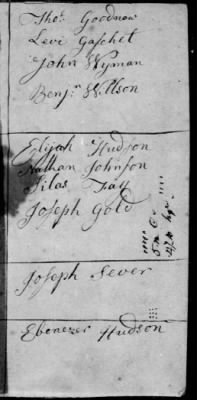 Tho.s Goodnow
Levi Gaschet
John Wyman
Benj.n Willson
Elijah Hudson
Nathan Johnson
Silas Fay
Joseph Gold
Joseph Sever
Ebenezer Hudson